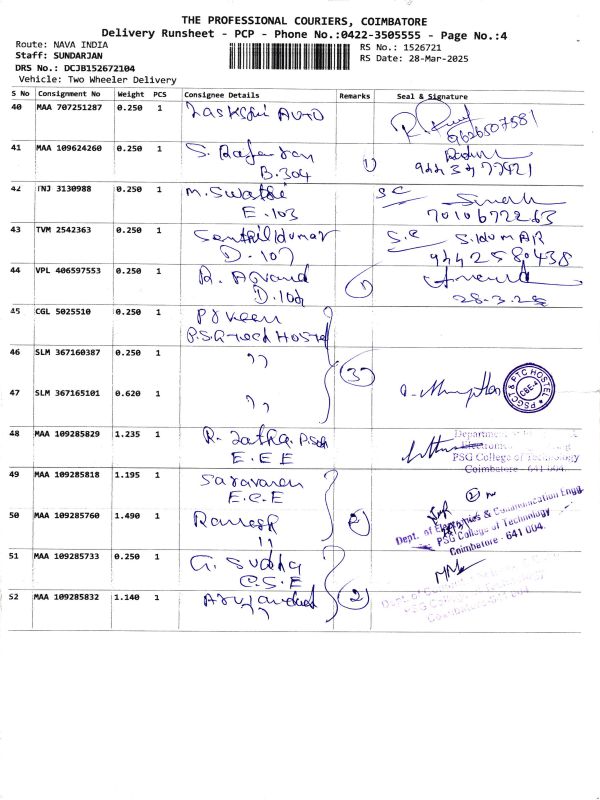 THE PROFESSIONAL COURIERS, COIMBATORE
Delivery Runsheet - PCP - Phone No.:0422-3505555 - Page No.:4
Route: NAVA INDIA
Staff: SUNDARJAN
DRS No.: DCJB152672104
Vehicle: Two Wheeler Delivery
RS No.: 1526721
RS Date: 28-Mar-2025
S No Consignment No Weight PCS Consignee Details Remarks Seal & Signature
40 MAA 707251287 0.250 1 Auto
9626507581
41 MAA 109624260 0.250 1 S. Rajaram
B.304 1
42 TNJ 3130988 0.250 1 M. Swathi S C
E.103 7010672263
43 TVM 2542363 0.250 1 Senthilkumar S.C S.KUMAR
D.107 9442580438
44 VPL 406597553 0.250 1 R. Anand 1
D.102 28.3.25
45 CGL 5025510 0.250 1 Praveen
P.S.G Tech Hostel
46 SLM 367160387 0.250 1 ,, 3
47 SLM 367165101 0.620 1 ,, PSGCT & PTC HOSTEL CBE-4
48 MAA 109285829 1.235 1 R. P.S.G
E.E.E
PSG College of Technology
Coimbatore - 641 004.
49 MAA 109285818 1.195 1 Saravanan
E.C.E
50 MAA 109285760 1.490 1 Ramesh 2
,,
Dept. of Electronics & Communication Engg.
PSG College of Technology
Coimbatore - 641 004.
51 MAA 109285733 0.250 1 G. Sudha
C.S.E
52 MAA 109285832 1.140 1 2
,,
PSG College of Technology